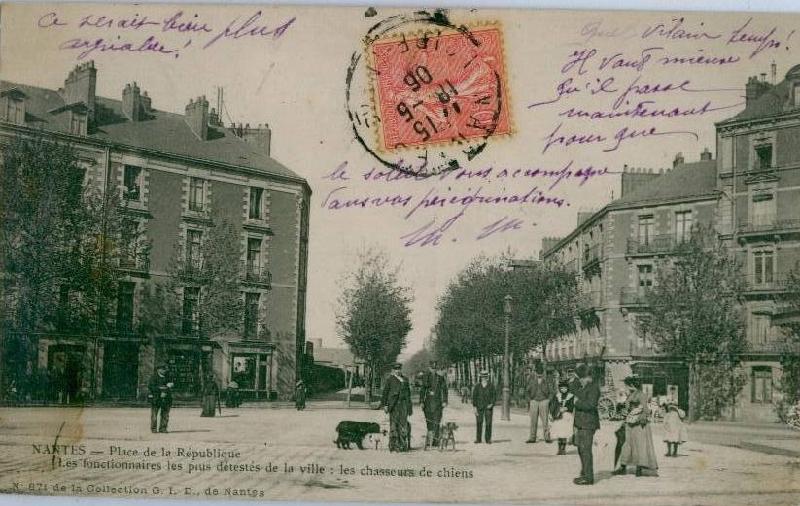 ce serait bien plus
agréable!
Quel vilain temps!
Il vaut mieux
qu'il passe
maintenant
pour que
le soleil vous accompagne
dans vos pérégrinations.
M. M.
15 -5
06
NANTES — Place de la République
Les fonctionnaires les plus détestés de la ville : les chasseurs de chiens
N° 871 de la Collection G. I. D., de Nantes